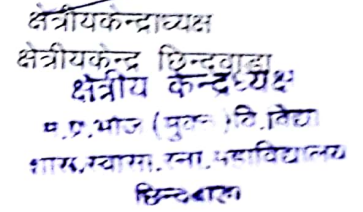 क्षेत्रीयकेन्द्राध्यक्ष
क्षेत्रीयकेन्द्र छिन्दवाड़ा
क्षेत्रीय केन्द्रध्यक्ष
म.प्र.भोज (मुक्त) वि.विद्या
शास.स्वासा.स्ना.महाविद्यालय
छिन्दवाड़ा